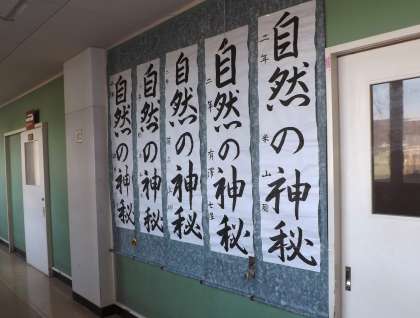 自然の神秘
二年 米山
自然の神秘
二年 有澤
自然の神秘
二年
自然の神秘
自然の神秘